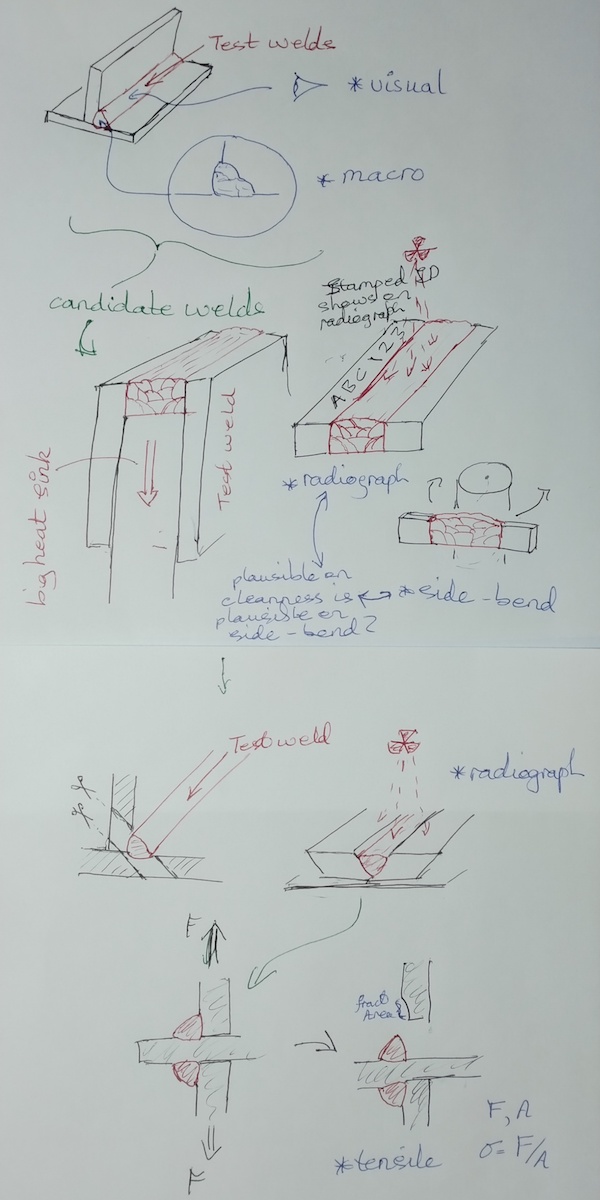 Test welds
* visual
* macro
candidate welds
Stamped ID
shows on
radiograph
ABC123
big heat sink
Test weld
* radiograph
plausible on
cleanness is
plausible on
side-bend?
* side-bend
Test weld
* radiograph
F
fract
Area
F
* tensile
F, A
σ= F/A